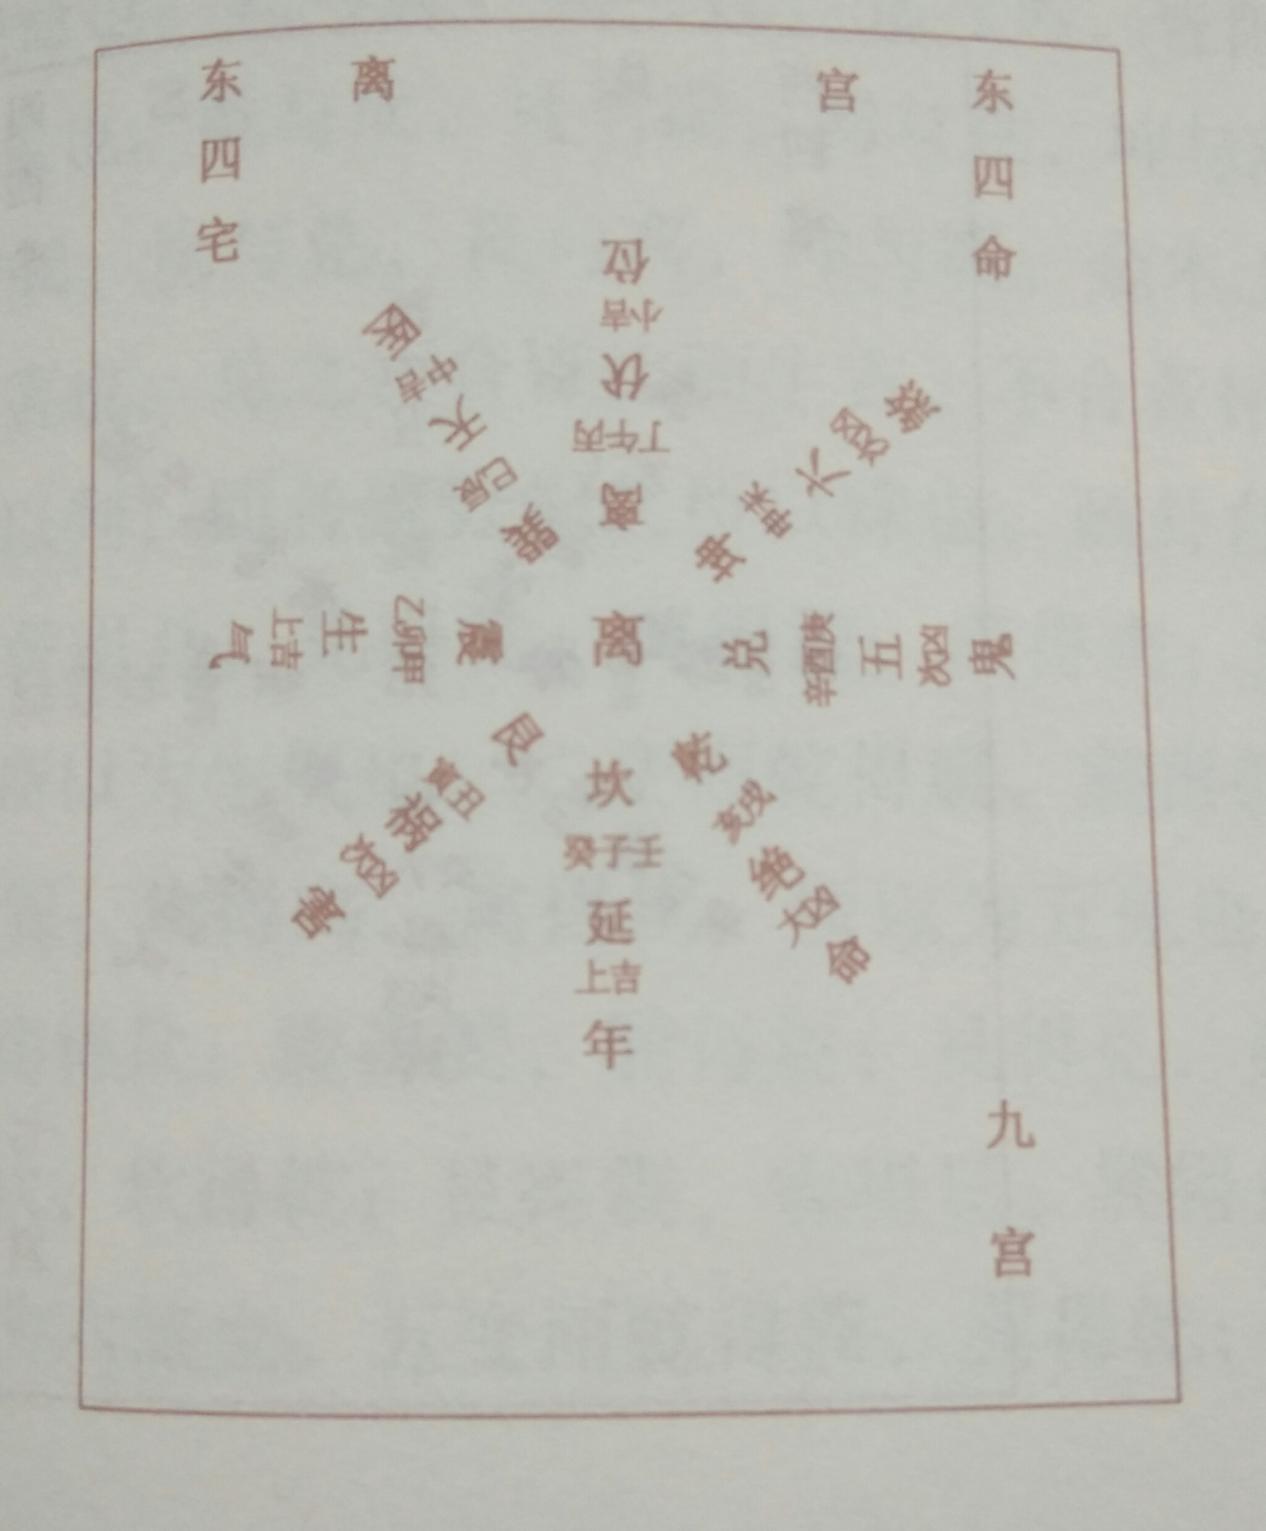 东四宅
离宫
东四命
离
离
丁午丙
伏
小吉
位
坤
未申
六
次凶
煞
兑
辛酉庚
五
次凶
鬼
乾
亥戌
绝
大凶
命
坎
癸子壬
延
上吉
年
艮
寅丑
祸
次凶
害
震
乙卯甲
生
上吉
气
巽
巳辰
天
中吉
医
九宫